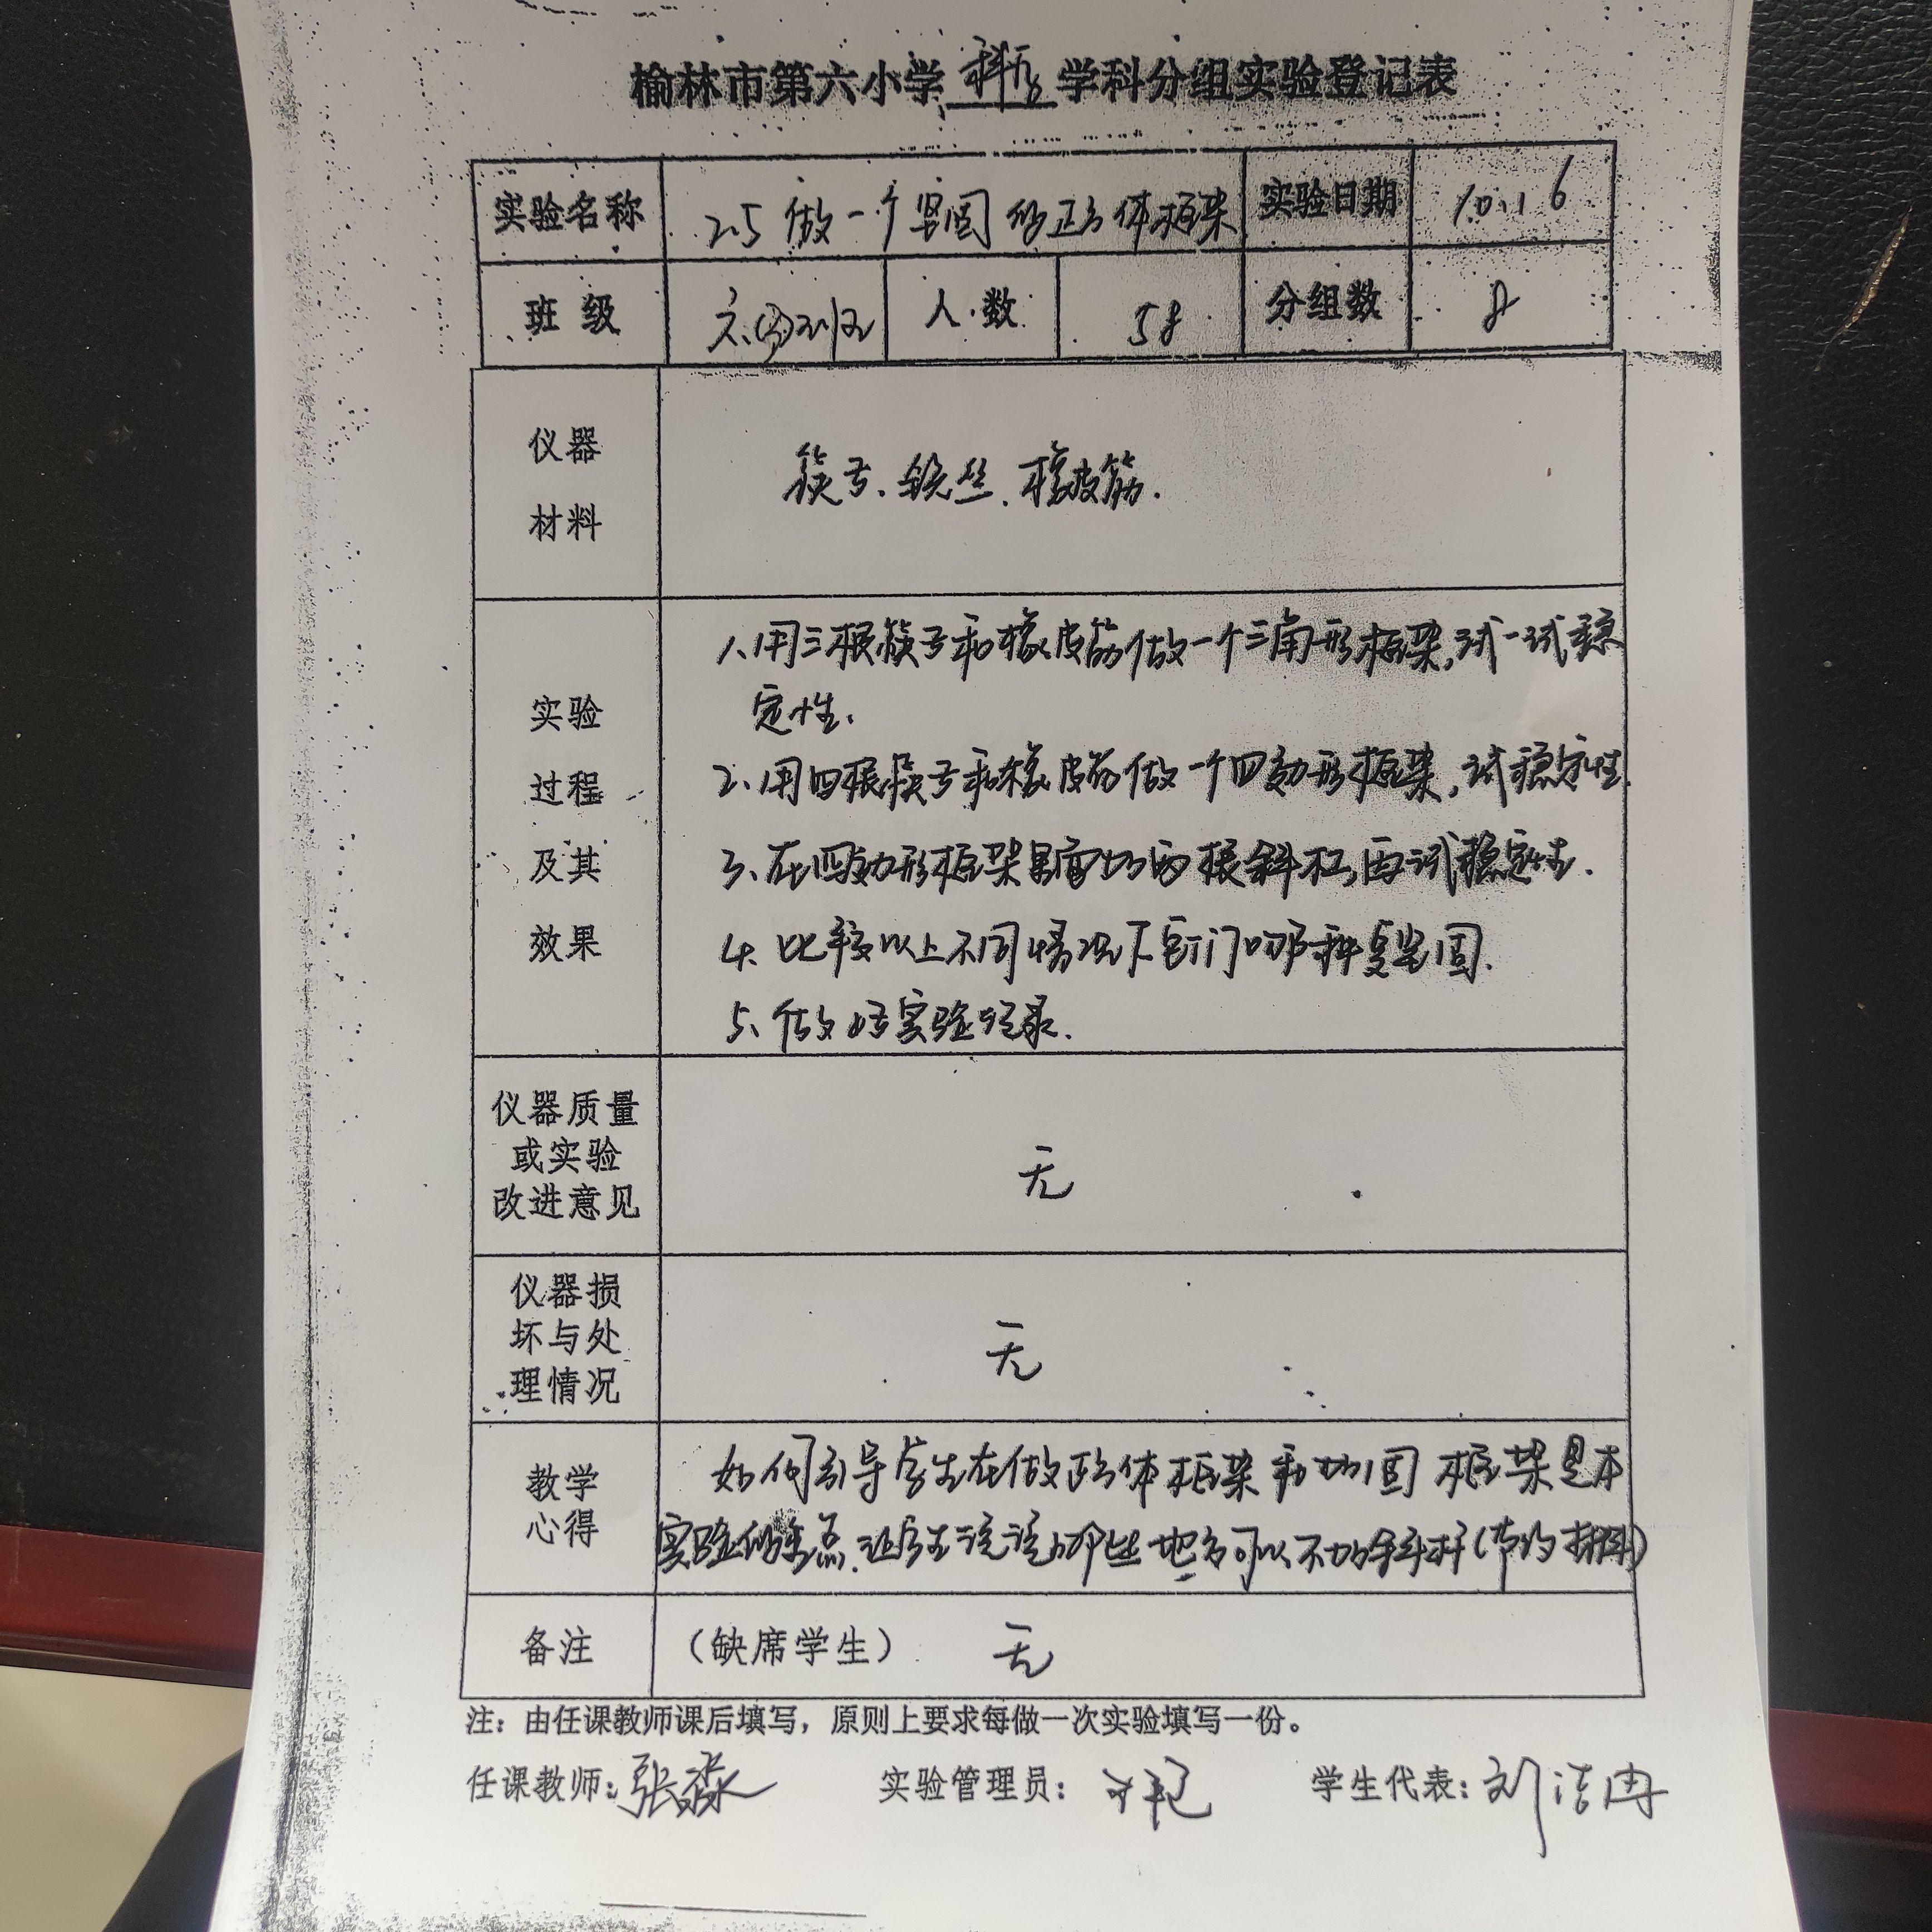 榆林市第六小学科学学科分组实验登记表
实验名称 2.5 做一个坚固的正方体框架 实验日期 10.16
班 级 六(3)班 人数 58 分组数 8
仪器
材料
筷子、铁丝、橡皮筋.
实验
过程
及其
效果
1、用三根筷子和橡皮筋做一个三角形框架,试一试稳
定性.
2、用四根筷子和橡皮筋做一个四边形框架,试稳定性.
3、在四边形框架里面加两根斜杠,再试稳定性.
4. 比较以上不同情况下它们哪种更坚固.
5、做好实验记录.
仪器质量
或实验
改进意见
无
仪器损
坏与处
理情况
无
教学
心得
如何引导学生在做正方体框架和加固框架是本
实验的重点.让学生说说哪些地方可以不加斜杆(节约材料)
备注 (缺席学生) 无
注：由任课教师课后填写，原则上要求每做一次实验填写一份。
任课教师：张淼 实验管理员： 学生代表：刘洁冉